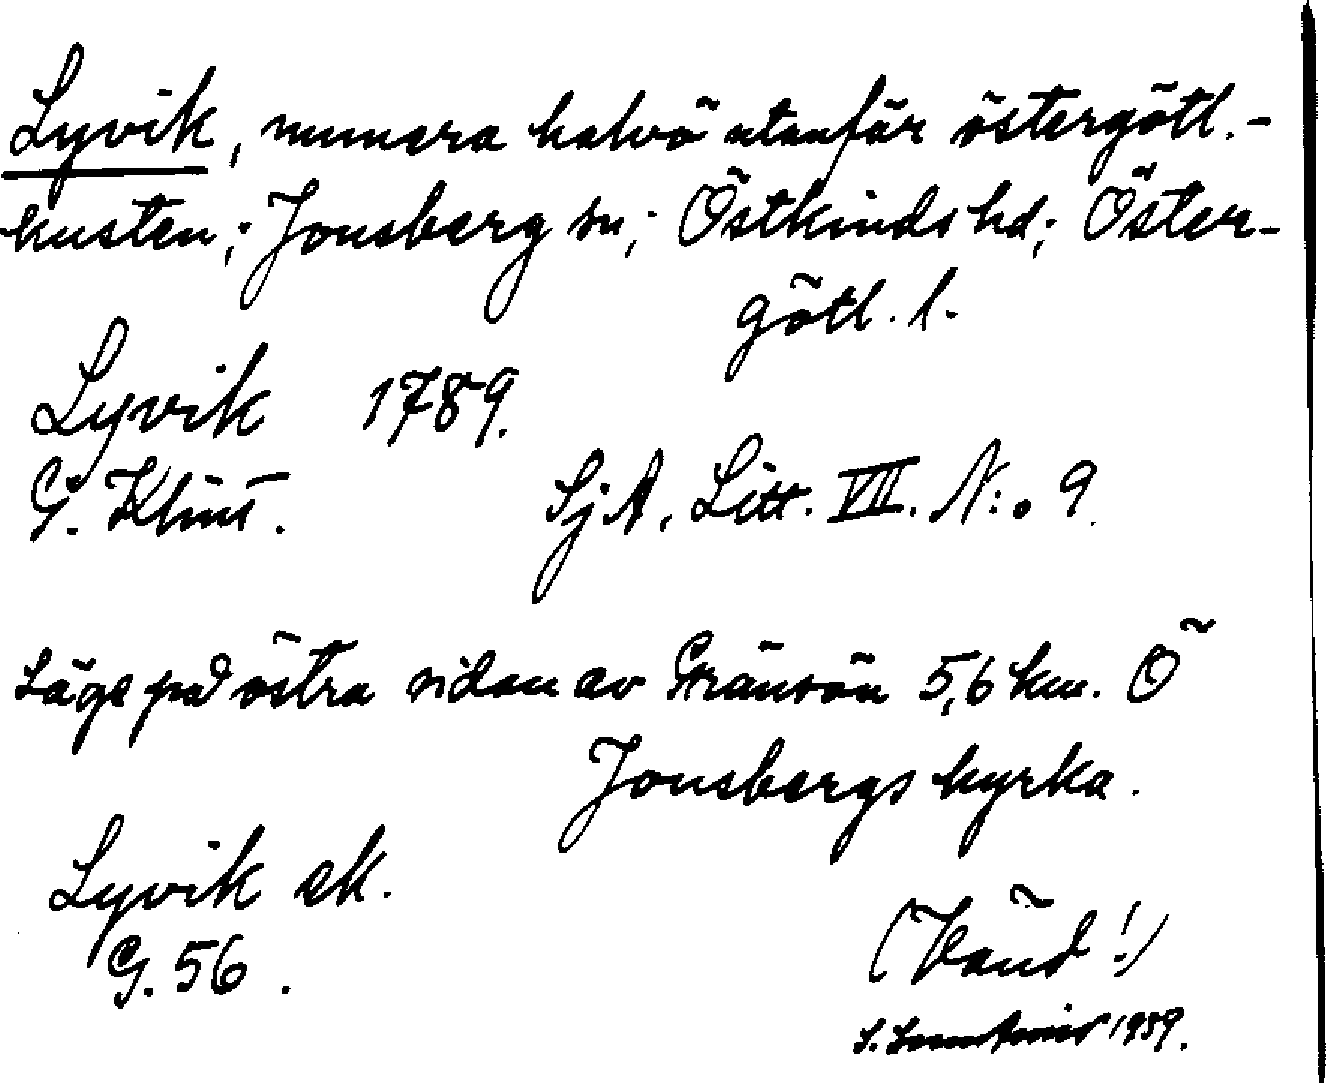 Lyvik, numera halvö utanför östergötl.-
kusten; Jonsberg sn; Östkinds hd; Öster-
götl. l.
Lyvik 1789.
G. Klint. SjA. Litt. VII. N:o 9.
Läge på östra sidan av Gränsön 5,6 km. Ö
Jonsbergs kyrka.
Lyvik ek.
G. 56.
(Vänd!)
S. 1939.